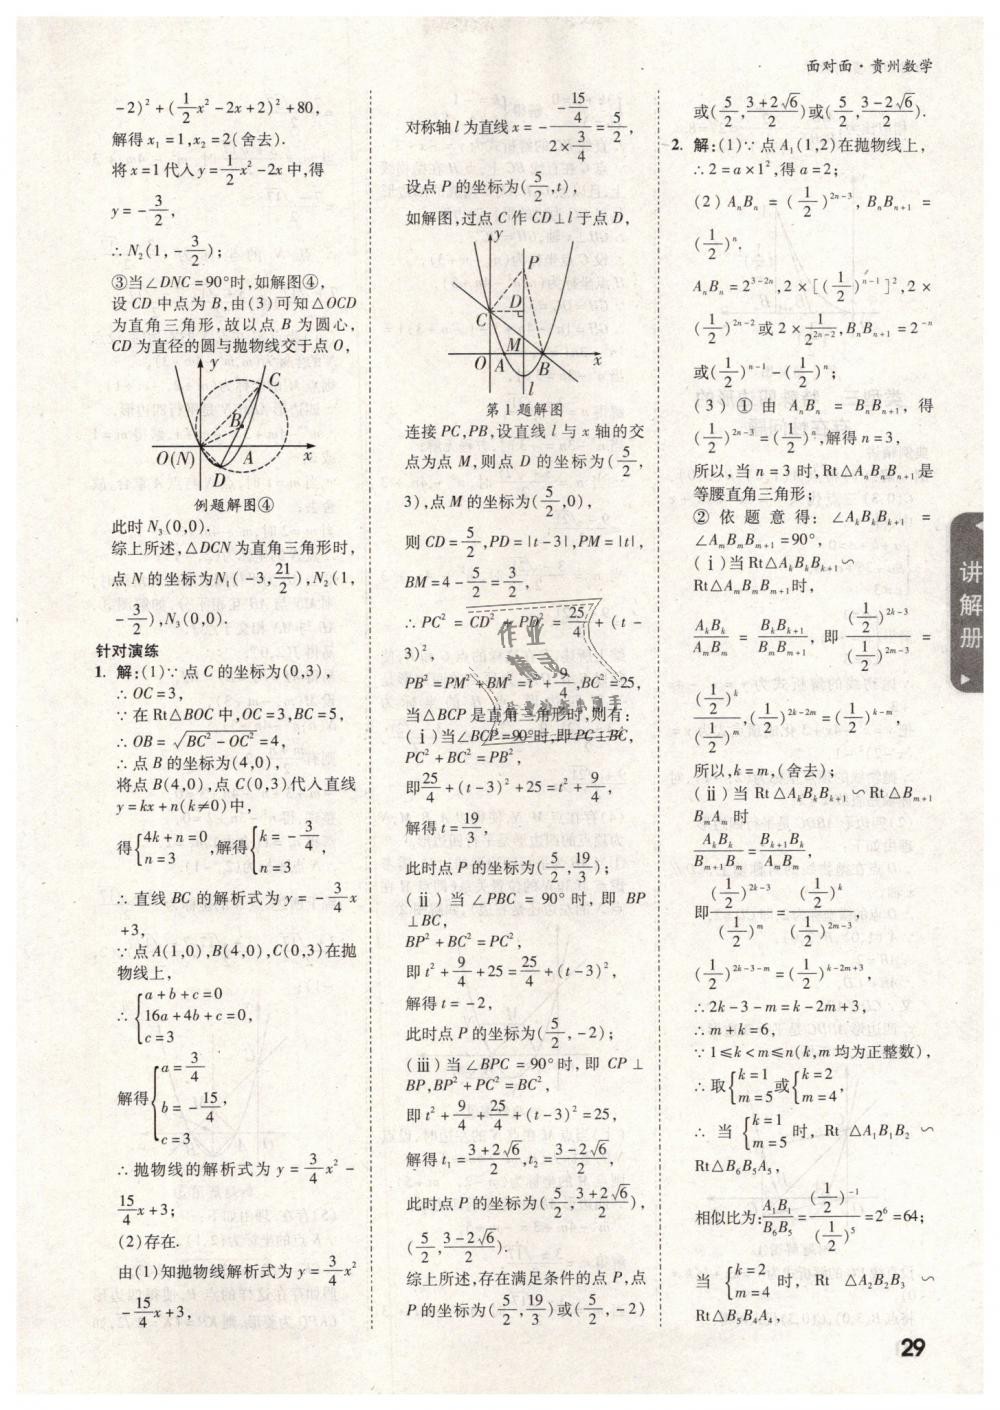 面对面·贵州数学
-2)²+(1/2x²-2x+2)²+80,
解得x₁=1,x₂=2(舍去).
将x=1代入y=1/2x²-2x中,得
y=-3/2,
∴N₂(1,-3/2);
③当∠DNC=90°时,如解图④,
设CD中点为B,由(3)可知△OCD
为直角三角形,故以点B为圆心,
CD为直径的圆与抛物线交于点O,
y
C
B
O(N) A x
D
例题解图④
此时N₃(0,0).
综上所述,△DCN为直角三角形时,
点N的坐标为N₁(-3,21/2),N₂(1,
-3/2),N₃(0,0).
针对演练
1. 解:(1)∵点C的坐标为(0,3),
∴OC=3,
∵在Rt△BOC中,OC=3,BC=5,
∴OB=√(BC²-OC²)=4,
∴点B的坐标为(4,0),
将点B(4,0),点C(0,3)代入直线
y=kx+n(k≠0)中,
得{4k+n=0 n=3,解得{k=-3/4 n=3,
∴直线BC的解析式为y=-3/4x
+3,
∵点A(1,0),B(4,0),C(0,3)在抛
物线上,
∴{a+b+c=0
16a+4b+c=0,
c=3
解得{a=3/4
b=-15/4,
c=3
∴抛物线的解析式为y=3/4x²-
15/4x+3;
(2)存在.
由(1)知抛物线解析式为y=3/4x²
-15/4x+3,
对称轴l为直线x=-(-15/4)/(2×3/4)=5/2,
设点P的坐标为(5/2,t),
如解图,过点C作CD⊥l于点D,
y
P
D
C
M
O A B x
l
第1题解图
连接PC,PB,设直线l与x轴的交
点为点M,则点D的坐标为(5/2,
3),点M的坐标为(5/2,0),
则CD=5/2,PD=|t-3|,PM=|t|,
BM=4-5/2=3/2,
∴PC²=CD²+PD²=25/4+(t-
3)²,
PB²=PM²+BM²=t²+9/4,BC²=25,
当△BCP是直角三角形时,则有:
(ⅰ)当∠BCP=90°时,即PC⊥BC,
PC²+BC²=PB²,
即25/4+(t-3)²+25=t²+9/4,
解得t=19/3,
此时点P的坐标为(5/2,19/3);
(ⅱ)当∠PBC=90°时,即BP
⊥BC,
BP²+BC²=PC²,
即t²+9/4+25=25/4+(t-3)²,
解得t=-2,
此时点P的坐标为(5/2,-2);
(ⅲ)当∠BPC=90°时,即CP⊥
BP,BP²+PC²=BC²,
即t²+9/4+25/4+(t-3)²=25,
解得t₁=(3+2√6)/2,t₂=(3-2√6)/2,
此时点P的坐标为(5/2,(3+2√6)/2),
(5/2,(3-2√6)/2).
综上所述,存在满足条件的点P,点
P的坐标为(5/2,19/3)或(5/2,-2)
或(5/2,(3+2√6)/2)或(5/2,(3-2√6)/2).
2. 解:(1)∵点A₁(1,2)在抛物线上,
∴2=a×1²,得a=2;
(2)AₙBₙ=(1/2)²ⁿ⁻³,BₙBₙ₊₁=
(1/2)ⁿ.
AₙBₙ=2³⁻²ⁿ,2×[(1/2)ⁿ⁻¹]²,2×
(1/2)²ⁿ⁻²或2×1/2²ⁿ⁻²,BₙBₙ₊₁=2⁻ⁿ
或(1/2)ⁿ⁻¹-(1/2)ⁿ;
(3)①由AₙBₙ=BₙBₙ₊₁,得
(1/2)²ⁿ⁻³=(1/2)ⁿ,解得n=3,
所以,当n=3时,Rt△AₙBₙBₙ₊₁是
等腰直角三角形;
②依题意得:∠AₖBₖBₖ₊₁=
∠AₘBₘBₘ₊₁=90°,
(ⅰ)当Rt△AₖBₖBₖ₊₁∽
Rt△AₘBₘBₘ₊₁时,
AₖBₖ/AₘBₘ=BₖBₖ₊₁/BₘBₘ₊₁,即(1/2)²ᵏ⁻³/(1/2)²ᵐ⁻³=
(1/2)ᵏ/(1/2)ᵐ,(1/2)²ᵏ⁻²ᵐ=(1/2)ᵏ⁻ᵐ,
所以,k=m,(舍去);
(ⅱ)当Rt△AₖBₖBₖ₊₁∽Rt△Bₘ₊₁
BₘAₘ时
AₖBₖ/Bₘ₊₁Bₘ=Bₖ₊₁Bₖ/AₘBₘ,
即(1/2)²ᵏ⁻³/(1/2)ᵐ=(1/2)ᵏ/(1/2)²ᵐ⁻³,
(1/2)²ᵏ⁻³⁻ᵐ=(1/2)ᵏ⁻²ᵐ⁺³,
∴2k-3-m=k-2m+3,
∴m+k=6,
∵1≤k<m≤n(k,m均为正整数),
∴取{k=1 m=5或{k=2 m=4,
∴当{k=1 m=5时,Rt△A₁B₁B₂∽
Rt△B₆B₅A₅,
相似比为:A₁B₁/B₆B₅=(1/2)⁻¹/(1/2)⁵=2⁶=64;
当{k=2 m=4时,Rt△A₂B₂B₃∽
Rt△B₅B₄A₄,
讲解册
29
作业
精灵